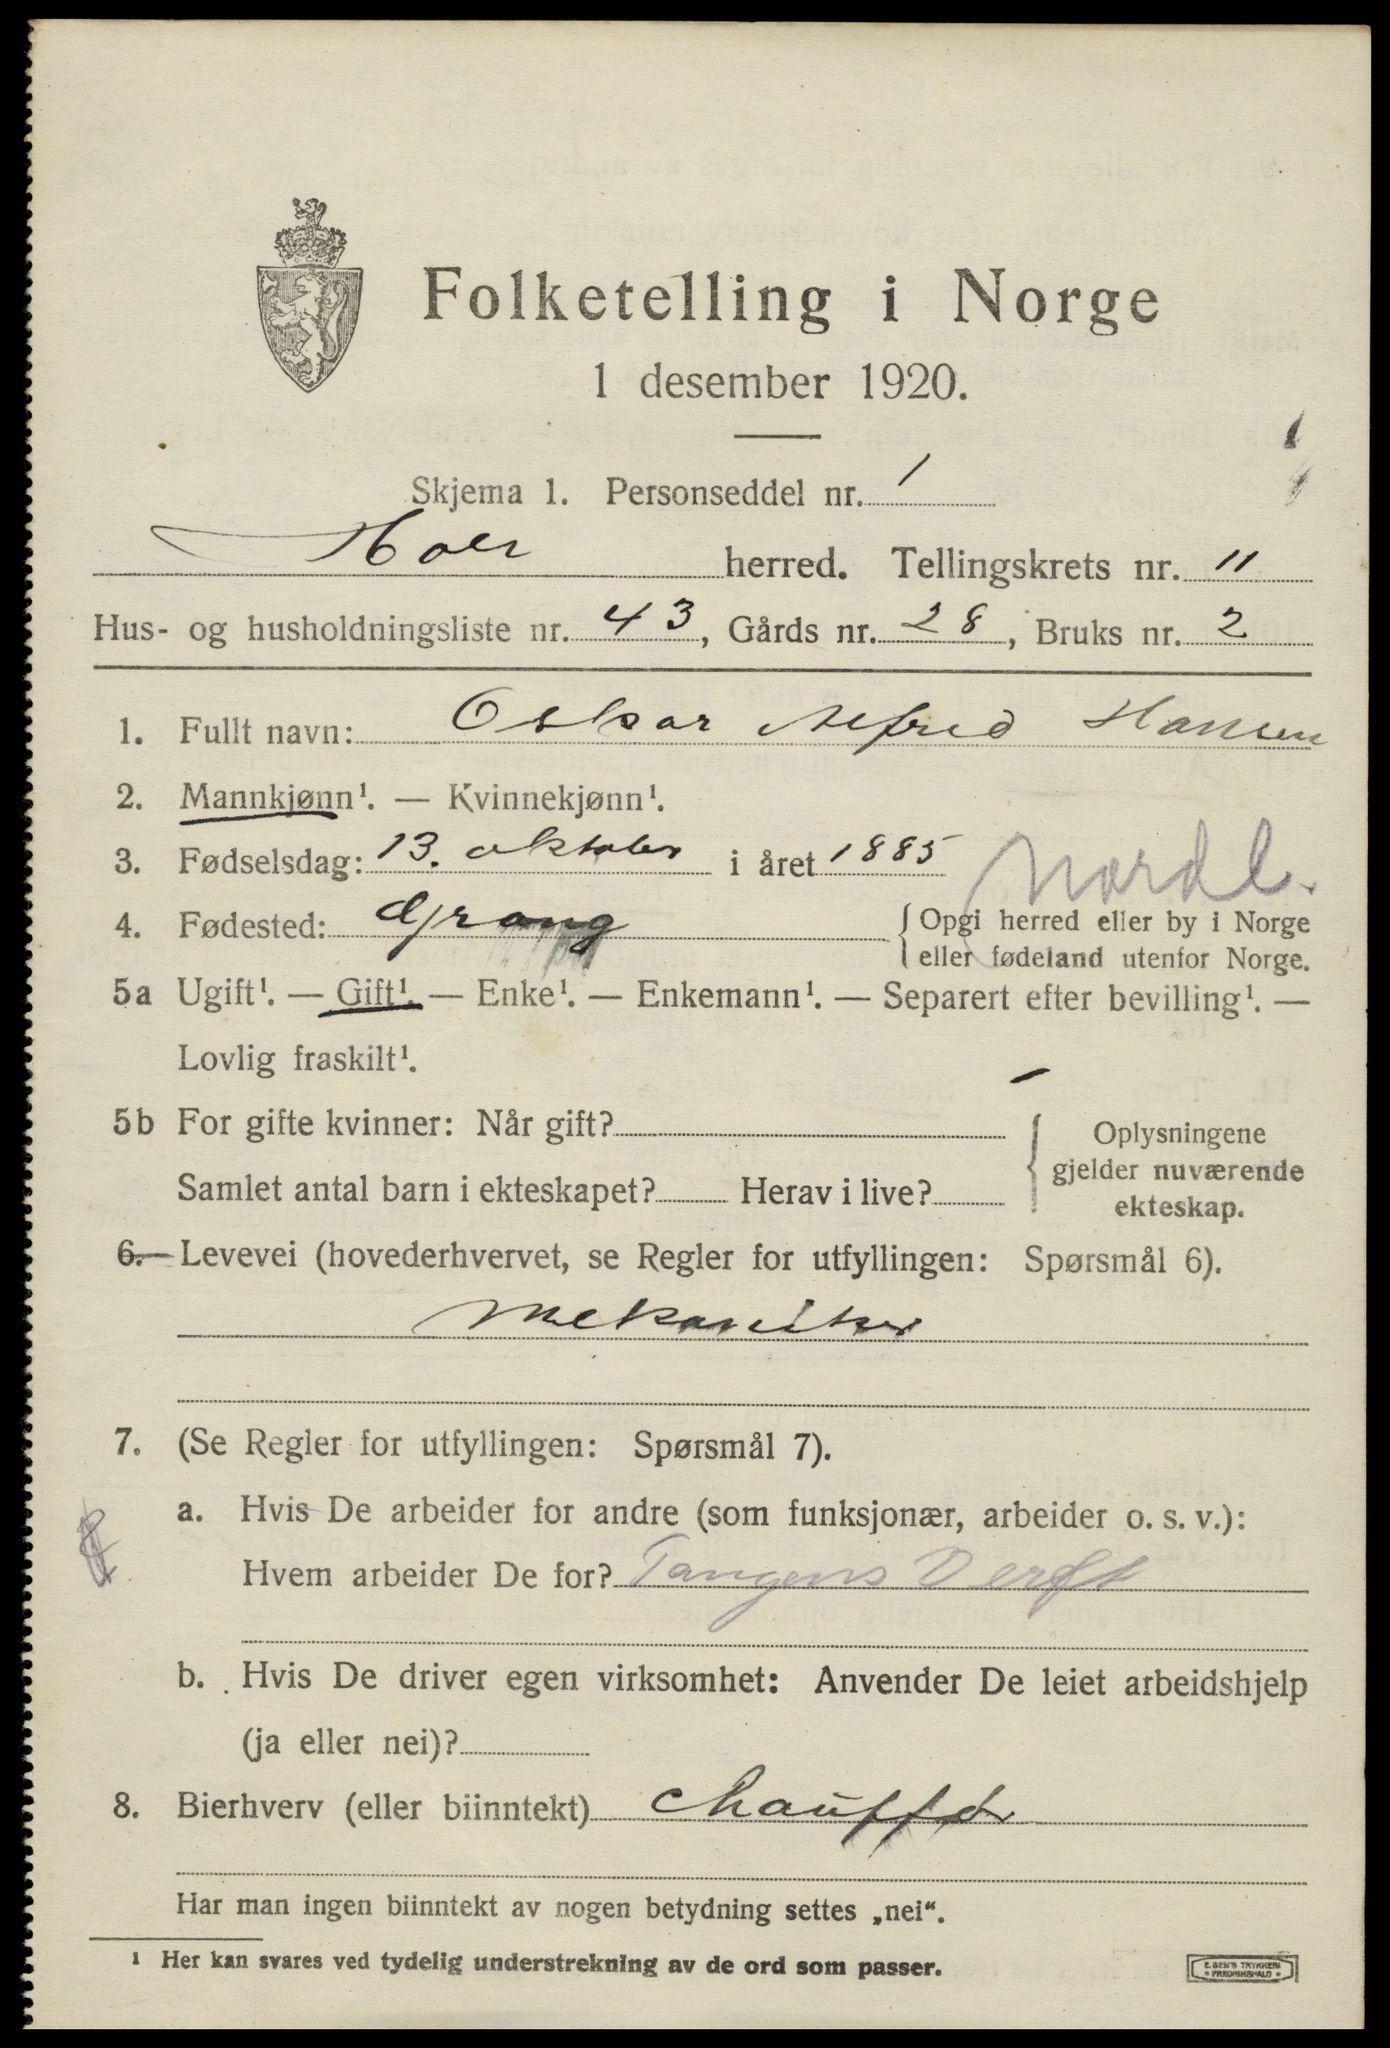 Folketelling i Norge
1 desember 1920.
Skjema 1. Personseddel nr. 1
herred. Tellingskrets nr. 11
Hus- og husholdningsliste nr. 43, Gårds nr. 28, Bruks nr. 2
1. Fullt navn: Oskar Alfred Hansen
2. Mannkjønn¹. — Kvinnekjønn¹.
3. Fødselsdag: 13. oktober i året 1885
Nordl.
4. Fødested: Grong { Opgi herred eller by i Norge
eller fødeland utenfor Norge.
5a Ugift¹. — Gift¹. — Enke¹. — Enkemann¹. — Separert efter bevilling¹. —
Lovlig fraskilt¹.
5b For gifte kvinner: Når gift?
Samlet antal barn i ekteskapet? Herav i live?
Oplysningene
gjelder nuværende
ekteskap.
6. Levevei (hovederhvervet, se Regler for utfyllingen: Spørsmål 6).
Mekaniker
7. (Se Regler for utfyllingen: Spørsmål 7).
a. Hvis De arbeider for andre (som funksjonær, arbeider o. s. v.):
Hvem arbeider De for? Tangens Verft
b. Hvis De driver egen virksomhet: Anvender De leiet arbeidshjelp
(ja eller nei)?
8. Bierhverv (eller biinntekt) chauffør
Har man ingen biinntekt av nogen betydning settes „nei“.
¹ Her kan svares ved tydelig understrekning av de ord som passer.
E. SEM'S TRYKKERI
• FREDRIKSHALD •